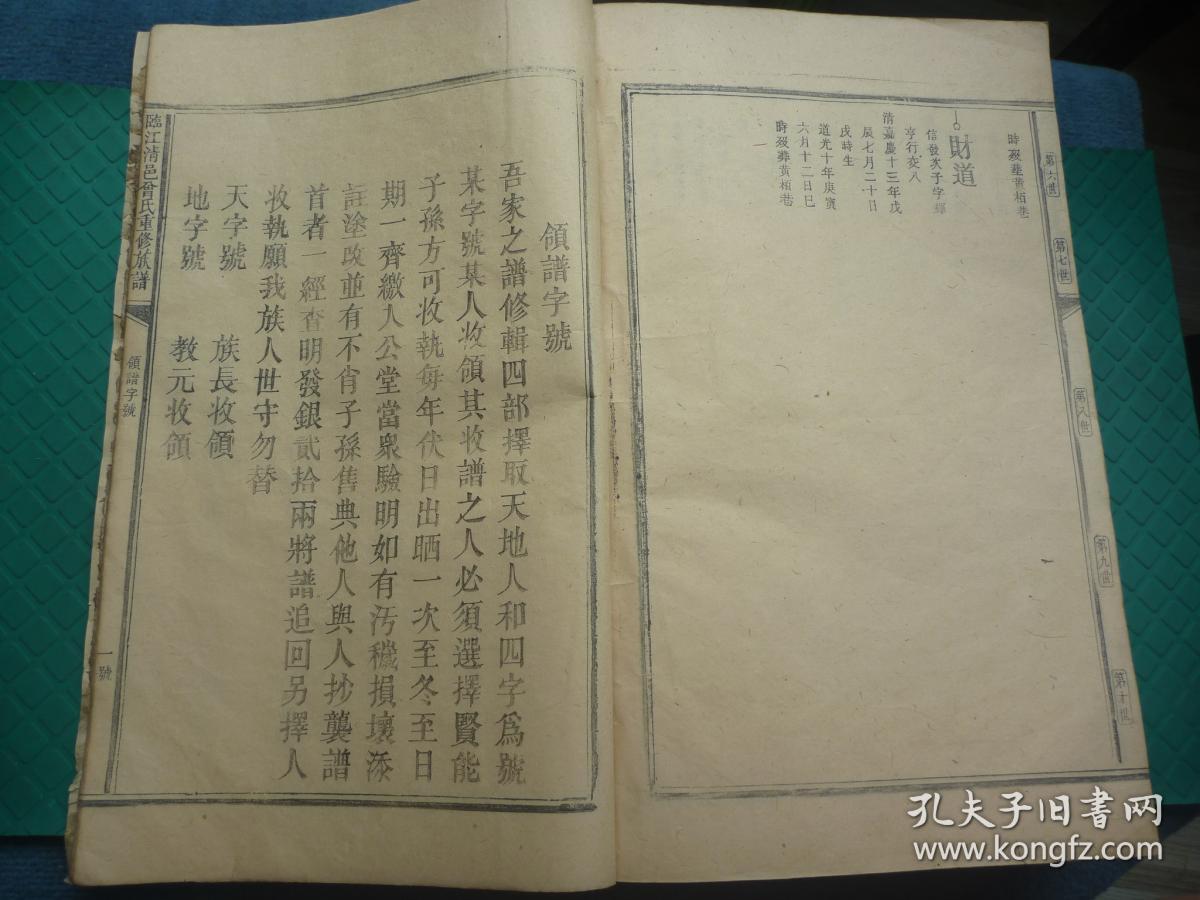 第六世
第七世
第八世
第九世
第十世
時歿葬黃栢巷
財道
信發次子字輝
亨行亥八
清嘉慶十三年戊
辰七月二十日
戌時生
道光十年庚寅
六月十二日巳
時歿葬黃栢巷
領譜字號
吾家之譜修輯四部擇取天地人和四字爲號
某字號某人收領其收譜之人必須選擇賢能
子孫方可收執每年伏日出晒一次至冬至日
期一齊繳入公堂當衆驗明如有汚穢損壞添
註塗改並有不肖子孫售典他人與人抄襲譜
首者一經查明發銀貳拾兩將譜追回另擇人
收執願我族人世守勿替
天字號 族長收領
地字號 教元收領
臨江清邑曾氏重修族譜
領譜字號
一號
孔夫子旧书网
www.kongfz.com